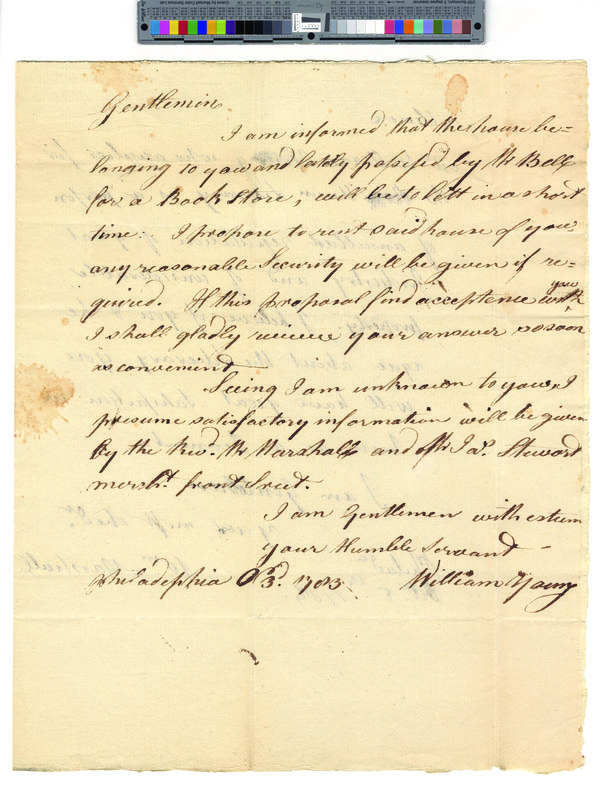 Gentlemin
I am informed that the house be=
longing to yow and lattly possised by Mr Bell
for a Book Store, will be to lett in a short
time: I propose to rent said house of yow
any reasonable Security will be given if re=
quired. If this proposal find acceptence with yow
I shall gladly recieve your answer so soon
as convenient
Seeing I am unknown to yow, I
presume satisfactory information will be given
by the Revd. Mr Marshall and Mr Jas. Steward
mercht. front Street.
I am Gentlemen with esteem
your Humble Servant
Philadephia 3. 1783. William Young